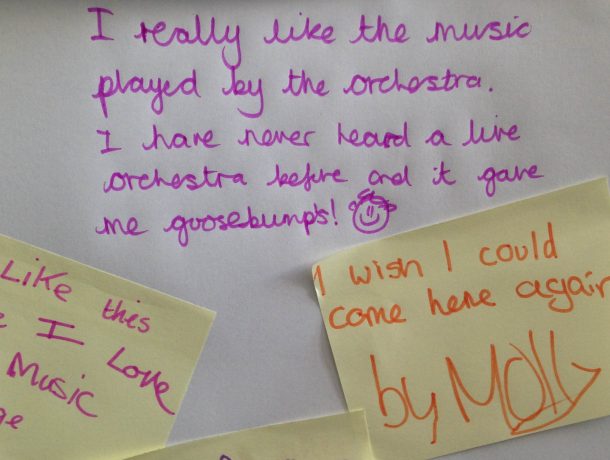 I really like the music
played by the orchestra.
I have never heard a live
orchestra before and it gave
me goosebumps!
Like this
I Love
Music
I wish I could
come here again
by Molly